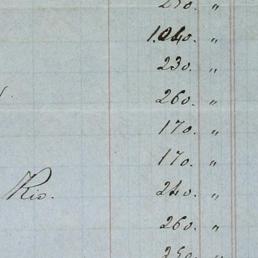 1.040. "
230. "
260. "
170. "
170. "
Rio. 240. "
260. "